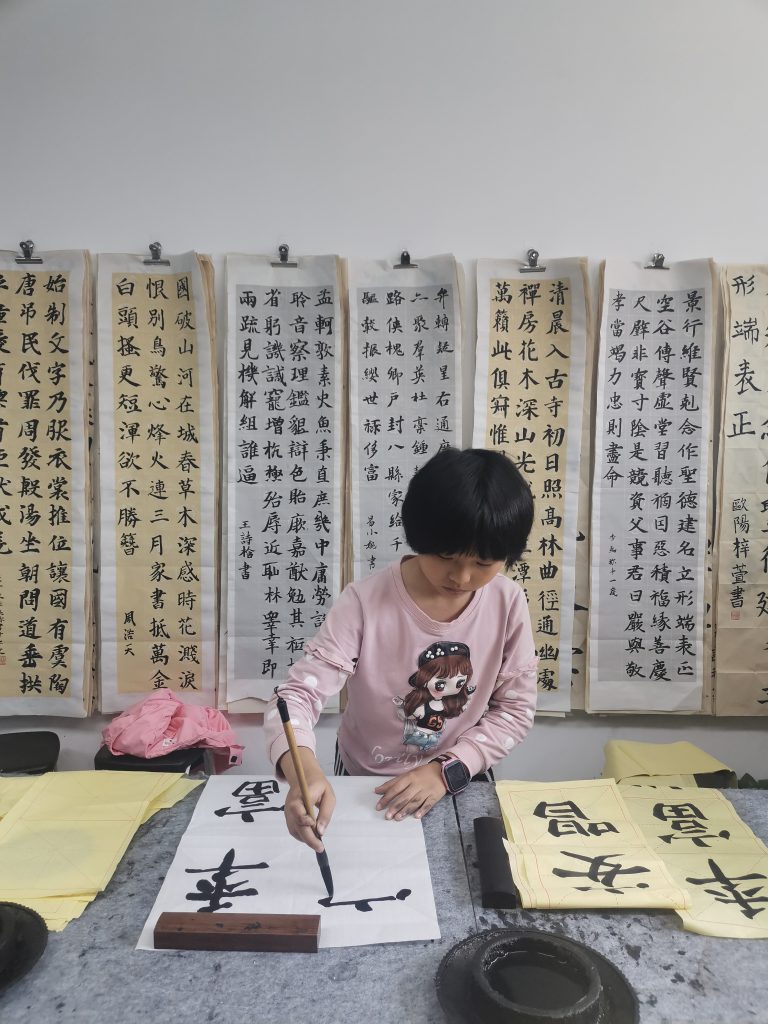 形端表正
歐陽梓萱書
景行維賢剋念作聖德建名立形端表正
空谷傳聲虛堂習聽禍因惡積福緣善慶
尺璧非寶寸陰是競資父事君曰嚴與敬
孝當竭力忠則盡命
清晨入古寺初日照高林曲徑通幽處
禪房花木深山光潭
萬籟此俱寂惟
弁轉疑星右通廣
六聚群英杜稾鍾
路俠槐卿戶封八縣家給千
驅轂振纓世祿侈富
孟軻敦素史魚秉直庶幾中庸勞謙
聆音察理鑑貌辯色貽厥嘉猷勉其祗
省躬譏誡寵增抗極殆辱近恥林皋幸即
兩疏見機解組誰逼
王詩拾書
國破山河在城春草木深感時花濺淚
恨別鳥驚心烽火連三月家書抵萬金
白頭搔更短渾欲不勝簪
始制文字乃服衣裳推位讓國有虞陶
唐弔民伐罪周發殷湯坐朝問道垂拱
富
李
富
李